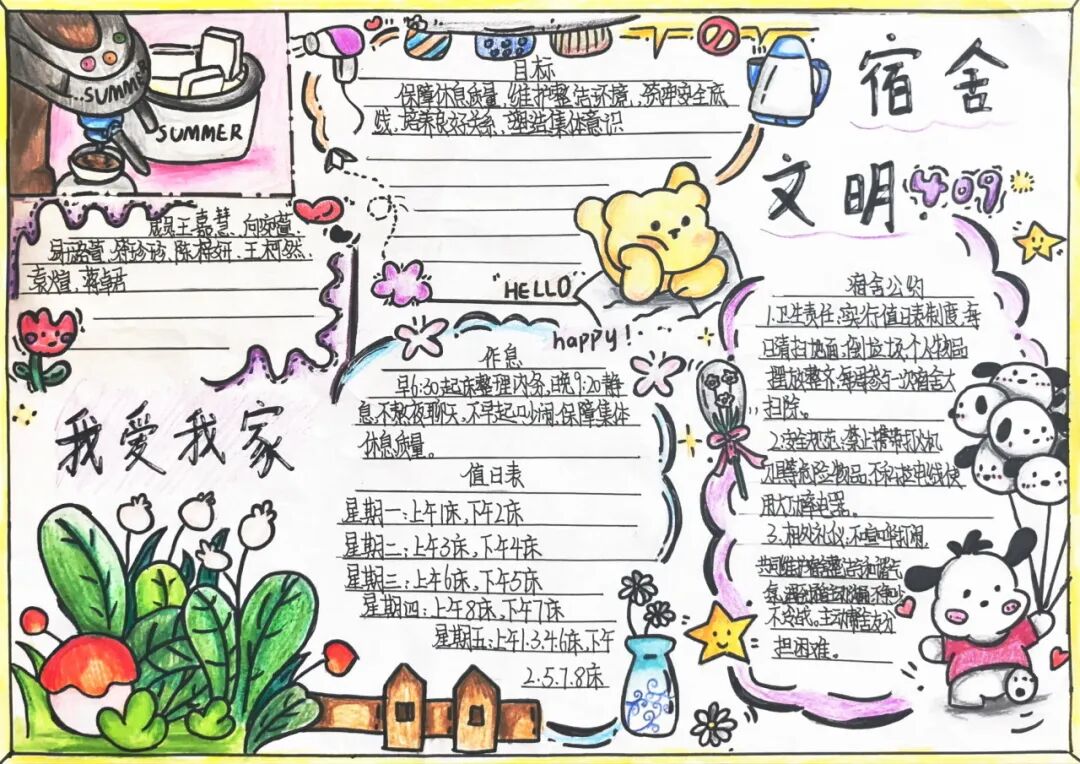 宿舍
文明409
SUMMER
SUMMER
目标
保障休息质量,维护整洁环境,筑牢安全底
线,培养良好关系,塑造集体意识
成员王嘉慧、向
陈梓妍、王柯然、
袁煊、蒋卓君
HELLO
happy!
我爱我家
作息
早6:30起床整理内务,晚9:20静
息,不熬夜聊天,不早起吵闹,保障集体
休息质量。
值日表
星期一:上午1床,下午2床
星期二:上午3床,下午4床
星期三:上午6床,下午5床
星期四:上午8床,下午7床
星期五:上午1.3.4.6床,下午
2.5.7.8床
宿舍公约
1.卫生责任:实行值日表制度,每
日清扫地面,倒垃圾,个人物品
摆放整齐,每周参与一次宿舍大
扫除。
2.安全规范:禁止携带打火机
刀具等危险物品,不私拉电线使
用大功率电器。
3.相处礼仪,不喧哗打闹,
共同维护宿舍整洁和谐气
不冷战,主动帮舍友分
担困难。